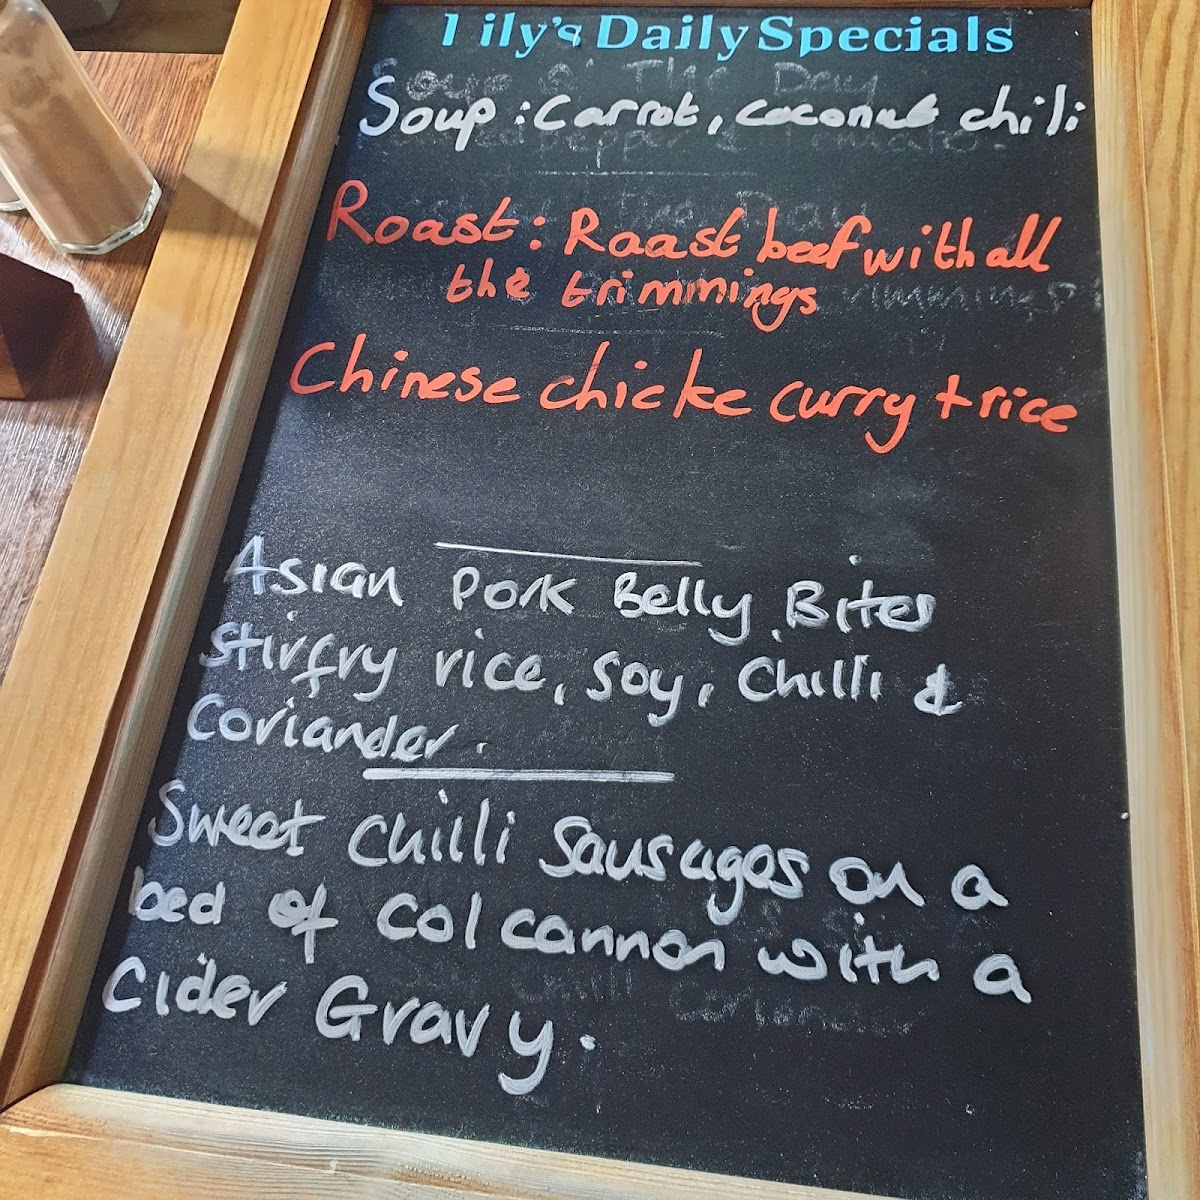 Lily's Daily Specials
Soup : Carrot, coconut chili
Roast : Roast beef with all
the trimmings
Chinese chicke curry + rice
Asian Pork Belly Bites
Stirfry rice, Soy, Chilli &
Coriander.
Sweet Chilli Sausages on a
bed of Colcannon with a
Cider Gravy.